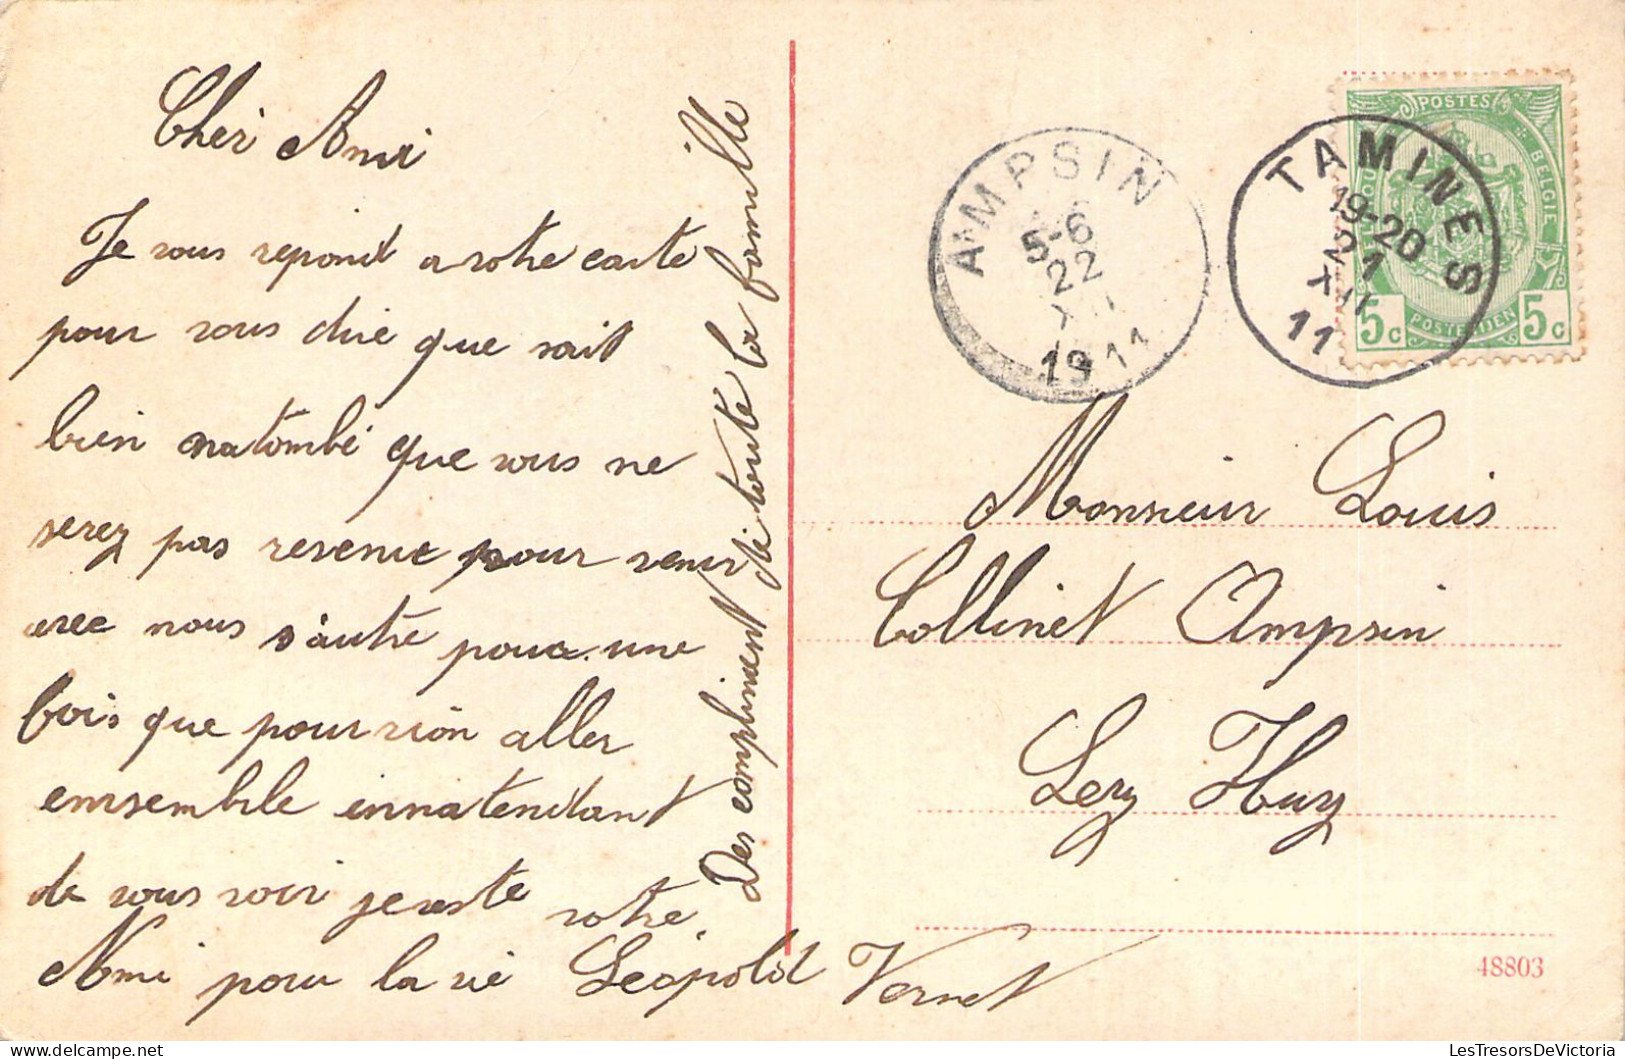 Cher Ami
Je vous repond a votre carte
pour vous dire que sait
bien matombé que vous ne
serez pas revenue pour venir
avec nous s'autre pouc. une
fois que pour rion aller
emsemble innatendant
de vous voir je reste votre
Ami pour la vie Leopold Vernet
Des compliment de toute la famille
AMPSIN
5-6
22
XII
1911
TAMINES
19-20
21
XII
11
POSTES
BELGIE
POSTERIJEN
5c 5c
Monsieur Louis
Collinet Ampsin
Lez Huy
48803
LesTresorsDeVictoria